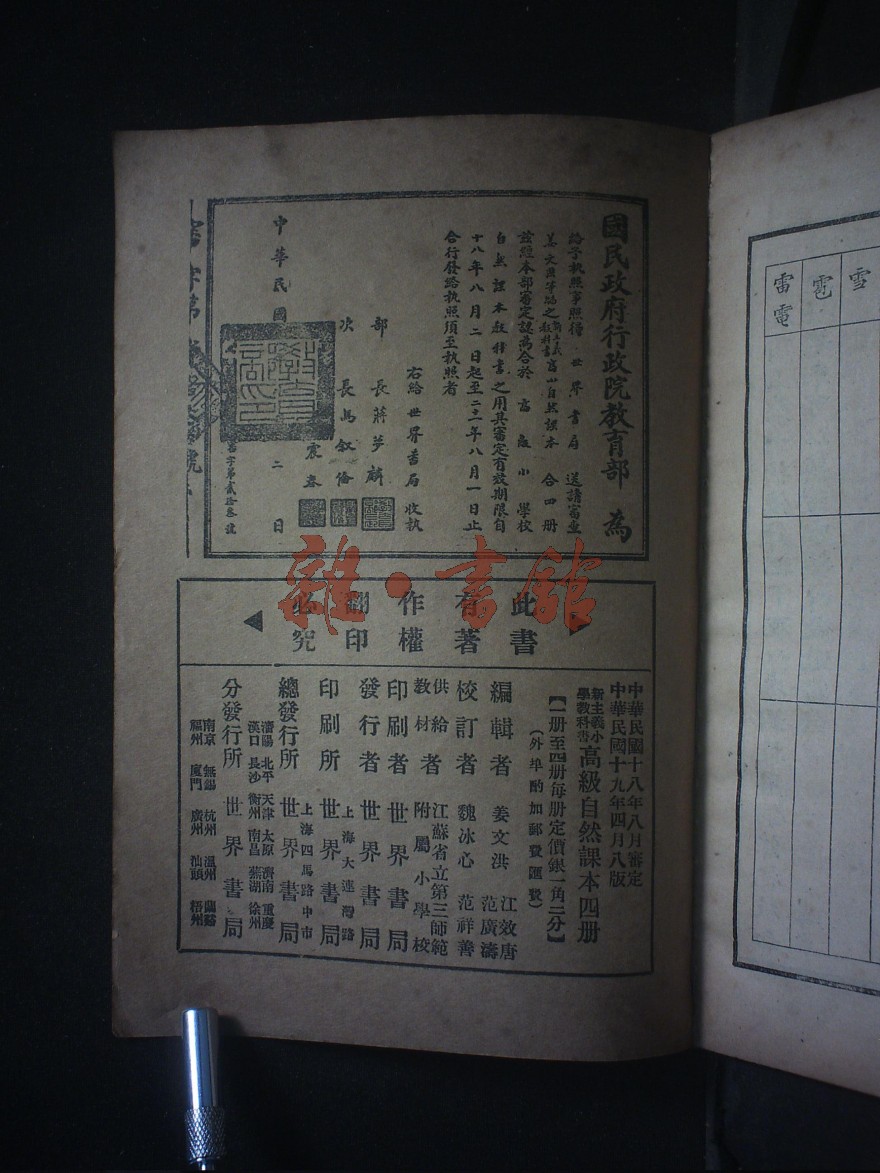 國民政府行政院教育部 為
給予執照事照得 世界書局 送請審查
姜文洪等編之新主義教科書高小自然課本 合四册
茲經本部審定認為合於 高級小 學校
自然課本教科書之用其審定有效期限自
十八年八月二日起至二十一年八月一日止
合行發給執照須至執照者
右給世界書局 收執
部 長蔣夢麟
次 長馬叙倫
中華民國
二 日
審字第貳拾叁號
雜·書館
此書
有著
作權
翻印
必究
中華民國十八年八月審定
中華民國十九年四月八版
新主義小學教科書 高級自然課本四册
【一册至四册每册定價銀一角二分】
(外埠酌加郵費匯費)
編輯者 姜文洪 江效唐 范廣濤
校訂者 魏冰心 范祥善
供給教材者 江蘇省立第三師範附屬小學校
印刷者 世界書局
發行者 世界書局
印刷所 上海大連灣路 世界書局
總發行所 上海四馬路中市 世界書局
分發行所 世界書局
瀋陽 北平 天津 太原 濟南 重慶
漢口 長沙 衡州 南昌 蕪湖 徐州
南京 無錫 杭州 溫州 蘭谿
福州 廈門 廣州 汕頭 梧州
雪
雹
雷電